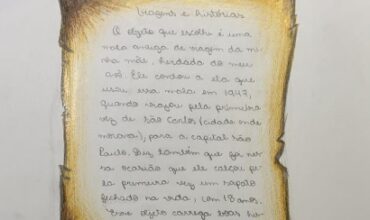 Viagens e histórias
O objeto que escolhi é uma
mala antiga de viagem da mi
nha mãe, herdada do meu
avô. Ele contou a ela que
usou essa mala em 1947,
quando viajou pela primeira
vez de São Carlos (cidade onde
morava), para a capital São
Paulo. Diz também que foi nes
sa ocasião que ele calçou pe
la primeira vez um sapato
fechado na vida, com 18 anos.
Esse objeto carrega boas his